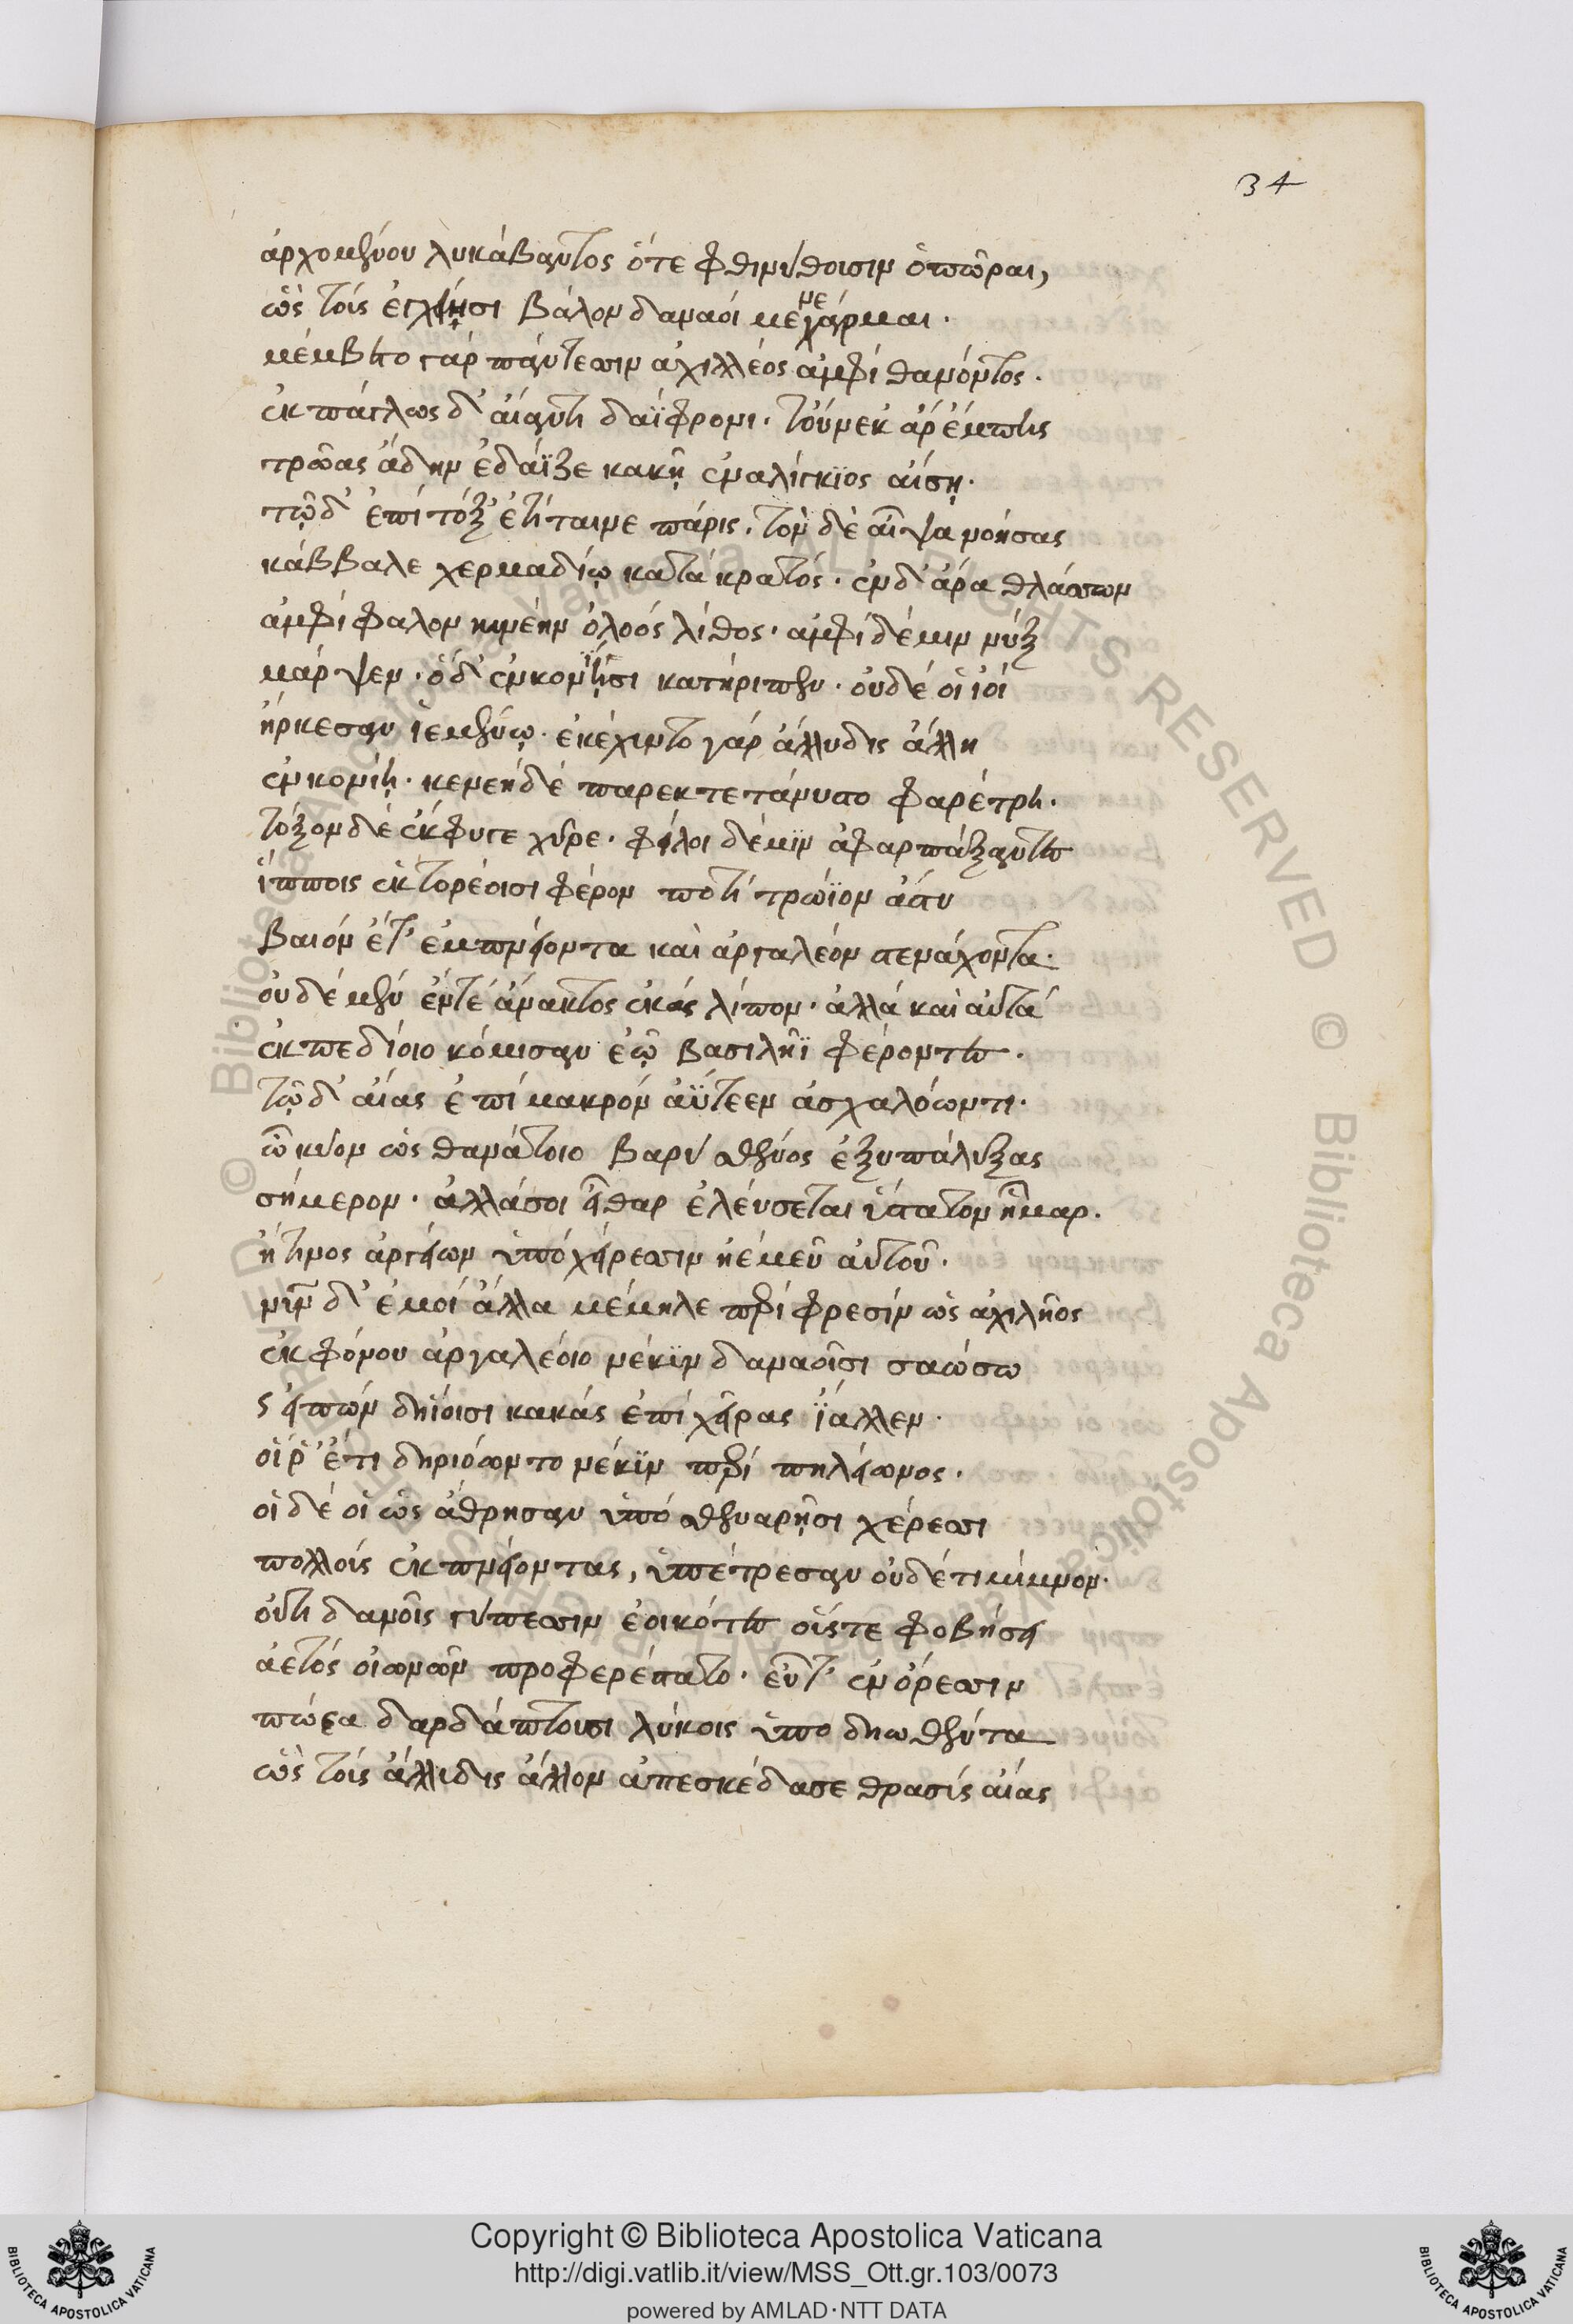 34
ἀρχομένου λυκάβαντος ὅτε φθινύθουσιν ὀπῶραι,
ὣς τοὺς ἐγχείῃσι βάλον δαναοὶ μενεχάρμαι.
μέμβλετο γὰρ πάντεσσιν ἀχιλλέος ἀμφὶ θανόντος.
ἐκπάγλως δ' αἴαντι δαΐφρονι. τοὔνεκ' ἄρ' ἔμπης
τρῶας ἄδην ἐδάϊζε κακῇ ἐναλίγκιος αἴσῃ.
τῷ δ' ἐπὶ τόξ' ἐτίταινε πάρις. τὸν δὲ αἶψα νοήσας
κάββαλε χερμαδίῳ κατὰ κρατός. ἐν δ' ἄρα θλάσσεν
ἀμφίφαλον κυνέην ὀλοὸς λίθος. ἀμφὶ δέ μιν νὺξ
μάρψεν. ὃ δ' ἐν κονίῃσι κατήριπεν. οὐδέ οἱ ἰοὶ
ἤρκεσαν ἱεμένῳ. ἐκέχυντο γὰρ ἄλλυδις ἄλλη
ἐν κονίῃ. κενεὴ δὲ παρεκτετάνυστο φαρέτρη.
τόξον δὲ ἔκφυγε χεῖρε. φίλοι δέ μιν ἀφαρπάξαντες
ἵπποις ἑκτορέοισι φέρον ποτὶ τρώϊον ἄστυ
βαιὸν ἔτ' ἐμπνείοντα καὶ ἀργαλέον στενάχοντα.
οὐδὲ μὲν ἔντε' ἄνακτος ἑκὰς λίπον. ἀλλὰ καὶ αὐτὰ
ἐκ πεδίοιο κόμισαν ἑῷ βασιλῆϊ φέροντες.
τῷ δ' αἴας ἐπὶ μακρὸν ἀΰτεεν ἀσχαλόωντι.
ὦ κύον ὡς θανάτοιο βαρὺ σθένος ἐξυπάλυξας
σήμερον. ἀλλά σοι εἶθαρ ἐλεύσεται ὕστατον ἦμαρ.
ἤ τινος ἀργείων ὑπὸ χείρεσσιν ἢ ἐμεῦ αὐτοῦ.
νῦν δ' ἐμοὶ ἄλλα μέμηλε περὶ φρεσὶν ὡς ἀχιλῆος
ἐκ φόνου ἀργαλέοιο νέκυν δαναοῖσι σαώσω
ὣς εἰπὼν δηίοισι κακὰς ἐπὶ χεῖρας ἴαλλεν.
οἵ ῥ' ἔτι δηριόωντο νέκυν περὶ πηλείωνος.
οἱ δέ οἱ ὡς ἄθρησαν ὑπὸ σθεναρῇσι χέρεσσι
πολλοὺς ἐκπνείοντας, ὑπέτρεσαν οὐδ' ἔτι μίμνον.
οὐτιδανοῖς γύπεσσιν ἐοικότες οὕς τε φοβήσει
αἰετὸς οἰωνῶν προφερέστατος. εὖτ' ἐν ὄρεσσιν
πώεα δαρδάπτουσι λύκοις ὕπο δῃωθέντα
ὣς τοὺς ἄλλυδις ἄλλον ἀπεσκέδασε θρασὺς αἴας
Copyright © Biblioteca Apostolica Vaticana
http://digi.vatlib.it/view/MSS_Ott.gr.103/0073
powered by AMLAD·NTT DATA